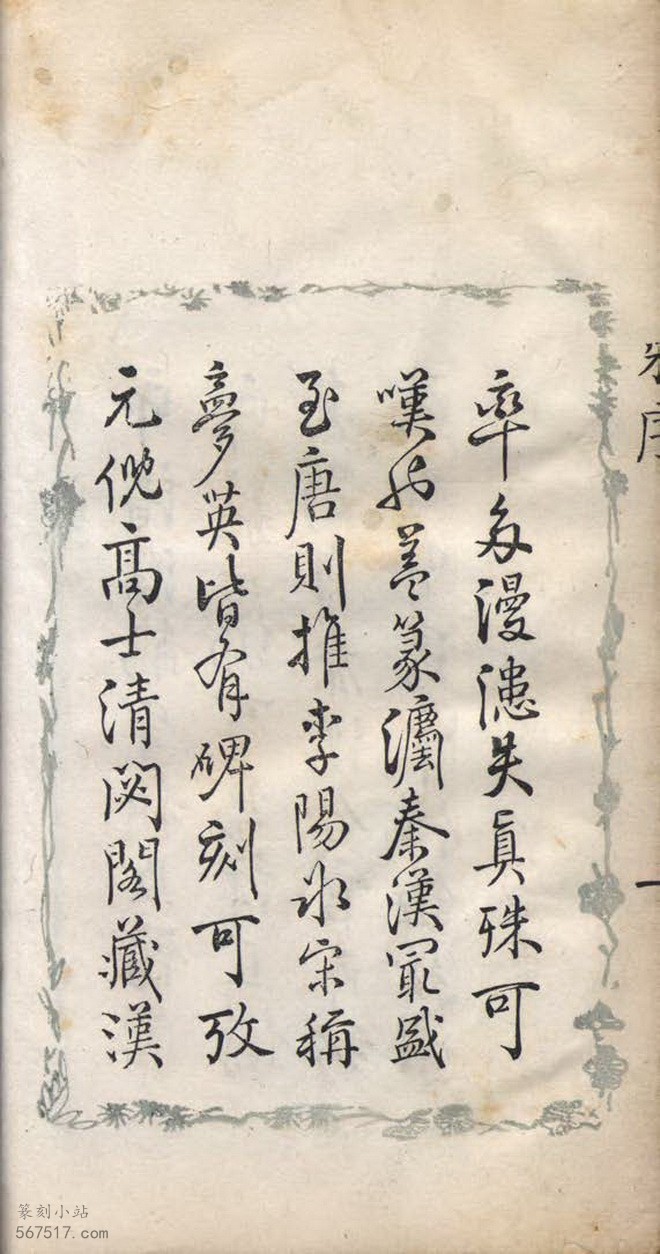 率多漫漶失真殊可
嘆也蓋篆灋秦漢冣盛
至唐則推李陽冰宋稱
夢英皆有碑刻可攷
元倪高士清閟閣藏漢
篆刻小站
567517.com